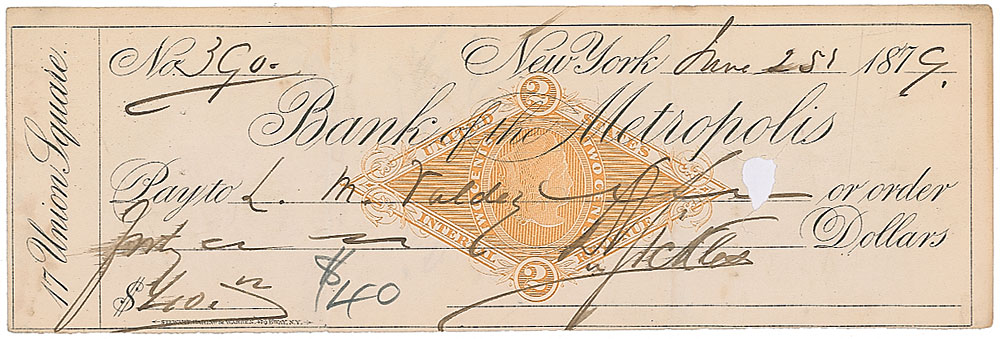 17 Union Square.
No. 390. New York June 25 1879.
Bank of the Metropolis
UNITED STATES
TWO CENTS
INTERNAL REVENUE
2
2
Pay to L. M. Valdez or order
Forty Dollars
$40. $40
Sickles